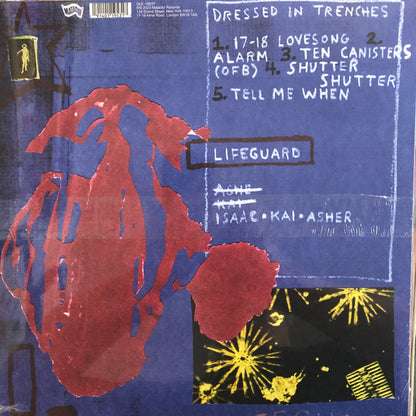 MATADOR
OLE-1960
2023 Matador Records
134 Grand Street, New York 10013
17-19 Alma Road, London SW18 1AA
DRESSED IN TRENCHES
1. 17-18 LOVESONG 2.
ALARM 3. TEN CANISTERS
(OFB) 4. SHUTTER
SHUTTER
5. TELL ME WHEN
LIFEGUARD
ASHE
KAI
ISAAC • KAI • ASHER